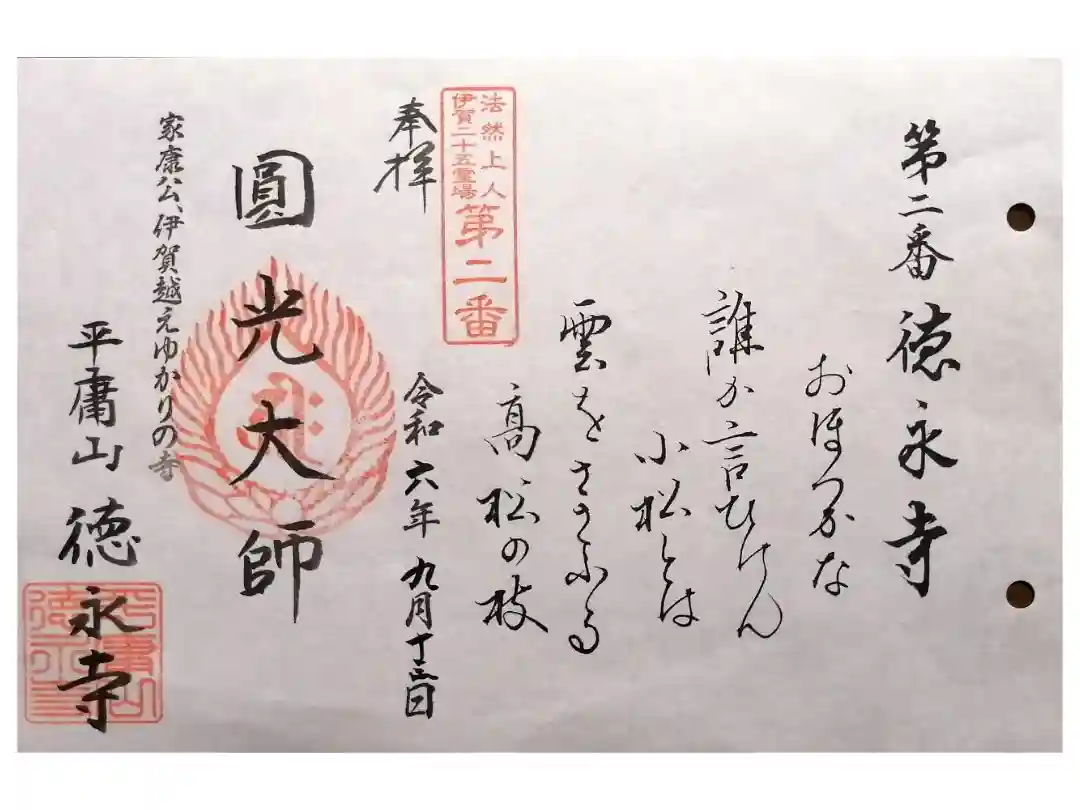 第二番 徳永寺
おほつかな
誰か言ひけん
小松とは
雲をさゝふる
高松の枝
法然上人
伊賀二十五霊場
第二番
奉拝
令和六年九月十三日
圓光大師
家康公、伊賀越えゆかりの寺
平庸山 徳永寺